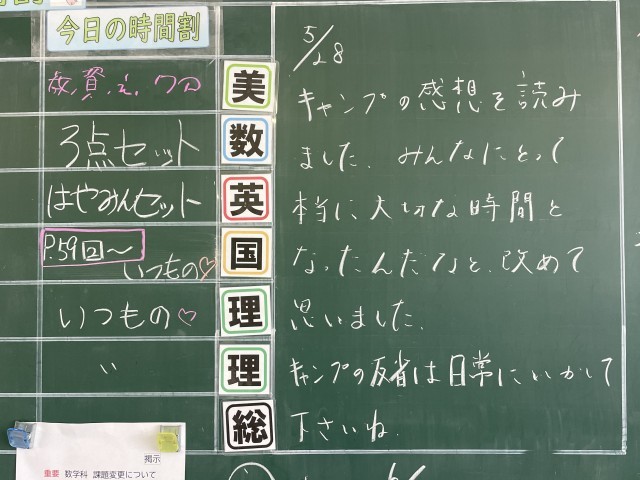 今日の時間割
美
3点セット 数
はやみんセット 英
P.59回〜
いつもの♡ 国
いつもの♡ 理
〃 理
総
5/28
キャンプの感想を読み
ました。みんなにとって
本当に大切な時間と
なったんだなと、改めて
思いました。
キャンプの反省は日常にいかして
下さいね。
掲示
重要 数学科 課題変更について